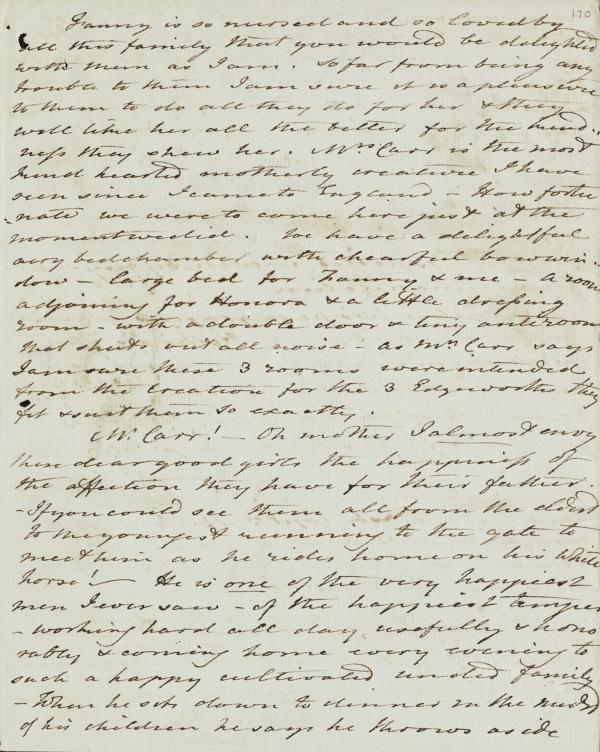 170
Fanny is so nursed and so loved by
all this family that you would be delighted
with them as I am. So far from being any
trouble to them I am sure it is a pleasure
to them to do all they do for her & they
will like her all the better for the kind-
ness they shew her. Mrs Carr is the most
kind hearted motherly creature I have
seen since I came to England – How fortu
nate we were to come here just at the
moment we did. We have a delightful
airy bedchamber with chearful bow win-
dow – large bed for Fanny & me – a room
adjoining for Honora & a little dressing
room – with a double door & tiny anteroom
that shuts out all noise – as Mrs Carr says
I am sure these 3 rooms were intended
from the creation for the 3 Edgeworths they
fit & suit them so exactly.
Mr Carr! – Oh mother I almost envy
these dear good girls the happiness of
the affection they have for their father.
– If you could see them all from the eldest
to the youngest running to the gate to
meet him as he rides home on his white
horse! – He is one of the very happiest
men I ever saw – of the happiest temper
– working hard all day usefully & hono
rably & coming home every evening to
such a happy cultivated united family
– When he sits down to dinner in the midst
of his children he says he throws aside